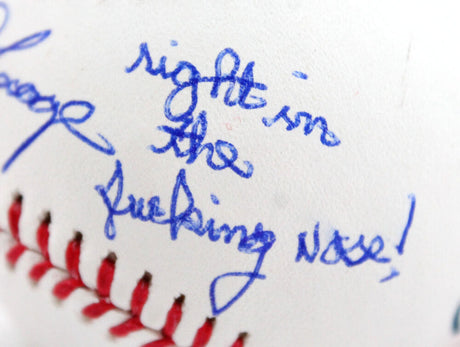 George
right in
the
fucking nose!